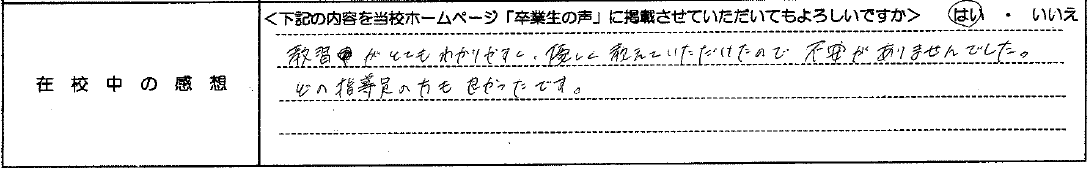 <下記の内容を当校ホームページ「卒業生の声」に掲載させていただいてもよろしいですか> はい ・ いいえ
在校中の感想
教習中がとてもわかりやすく、優しく教えていただけたので不安がありませんでした。
どの指導員の方も良かったです。